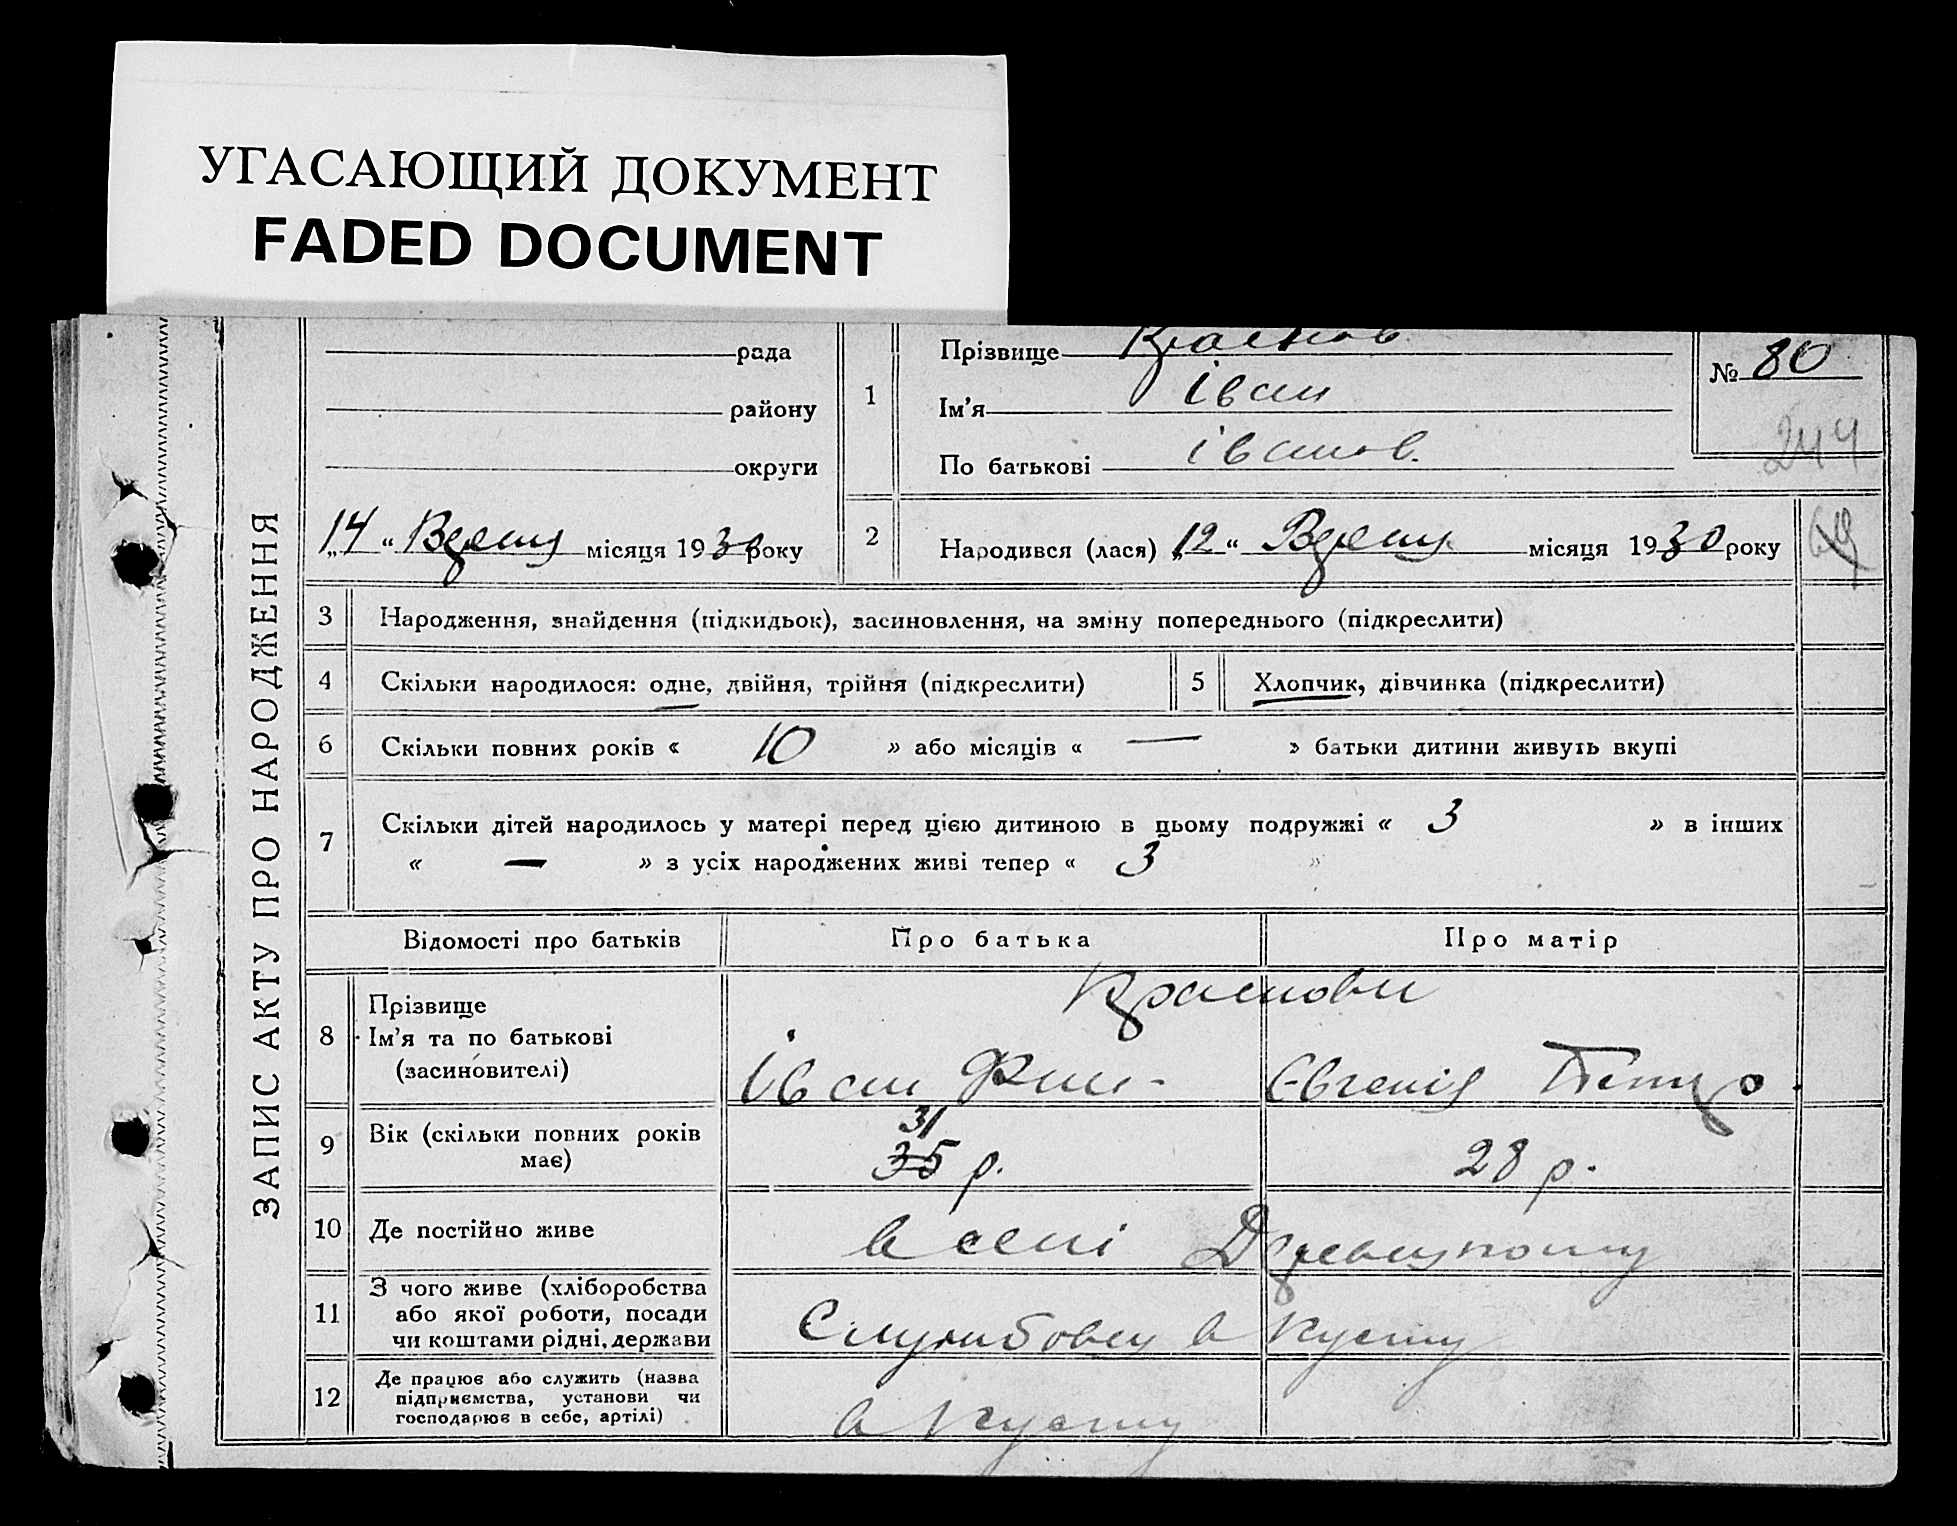 УГАСАЮЩИЙ ДОКУМЕНТ
FADED DOCUMENT
ЗАПИС АКТУ ПРО НАРОДЖЕННЯ
рада
району
округи
„14“ Вересн місяця 1930 року
1
Прізвище
Ім'я Іван
По батькові Іванов.
№ 80
244
2 Народився (лася) „12“ Вересн місяця 1930 року
3 Народження, знайдення (підкидьок), засиновлення, на зміну попереднього (підкреслити)
4 Скільки народилося: одне, двійня, трійня (підкреслити)
5 Хлопчик, дівчинка (підкреслити)
6 Скільки повних років « 10 » або місяців « — » батьки дитини живуть вкупі
7 Скільки дітей народилось у матері перед цією дитиною в цьому подружжі « 3 » в інших
« — » з усіх народжених живі тепер « 3 »
Відомості про батьків Про батька Про матір
8 Прізвище
Ім'я та по батькові
(засиновителі)
Іван Євгенія Петр
9 Вік (скільки повних років
має)
31
35 р. 28 р.
10 Де постійно живе в селі
11 З чого живе (хліборобства
або якої роботи, посади
чи коштами рідні, держави
Службовец в кущу
12 Де працює або служить (назва
підприємства, установи чи
господарює в себе, артілі)
в кущу